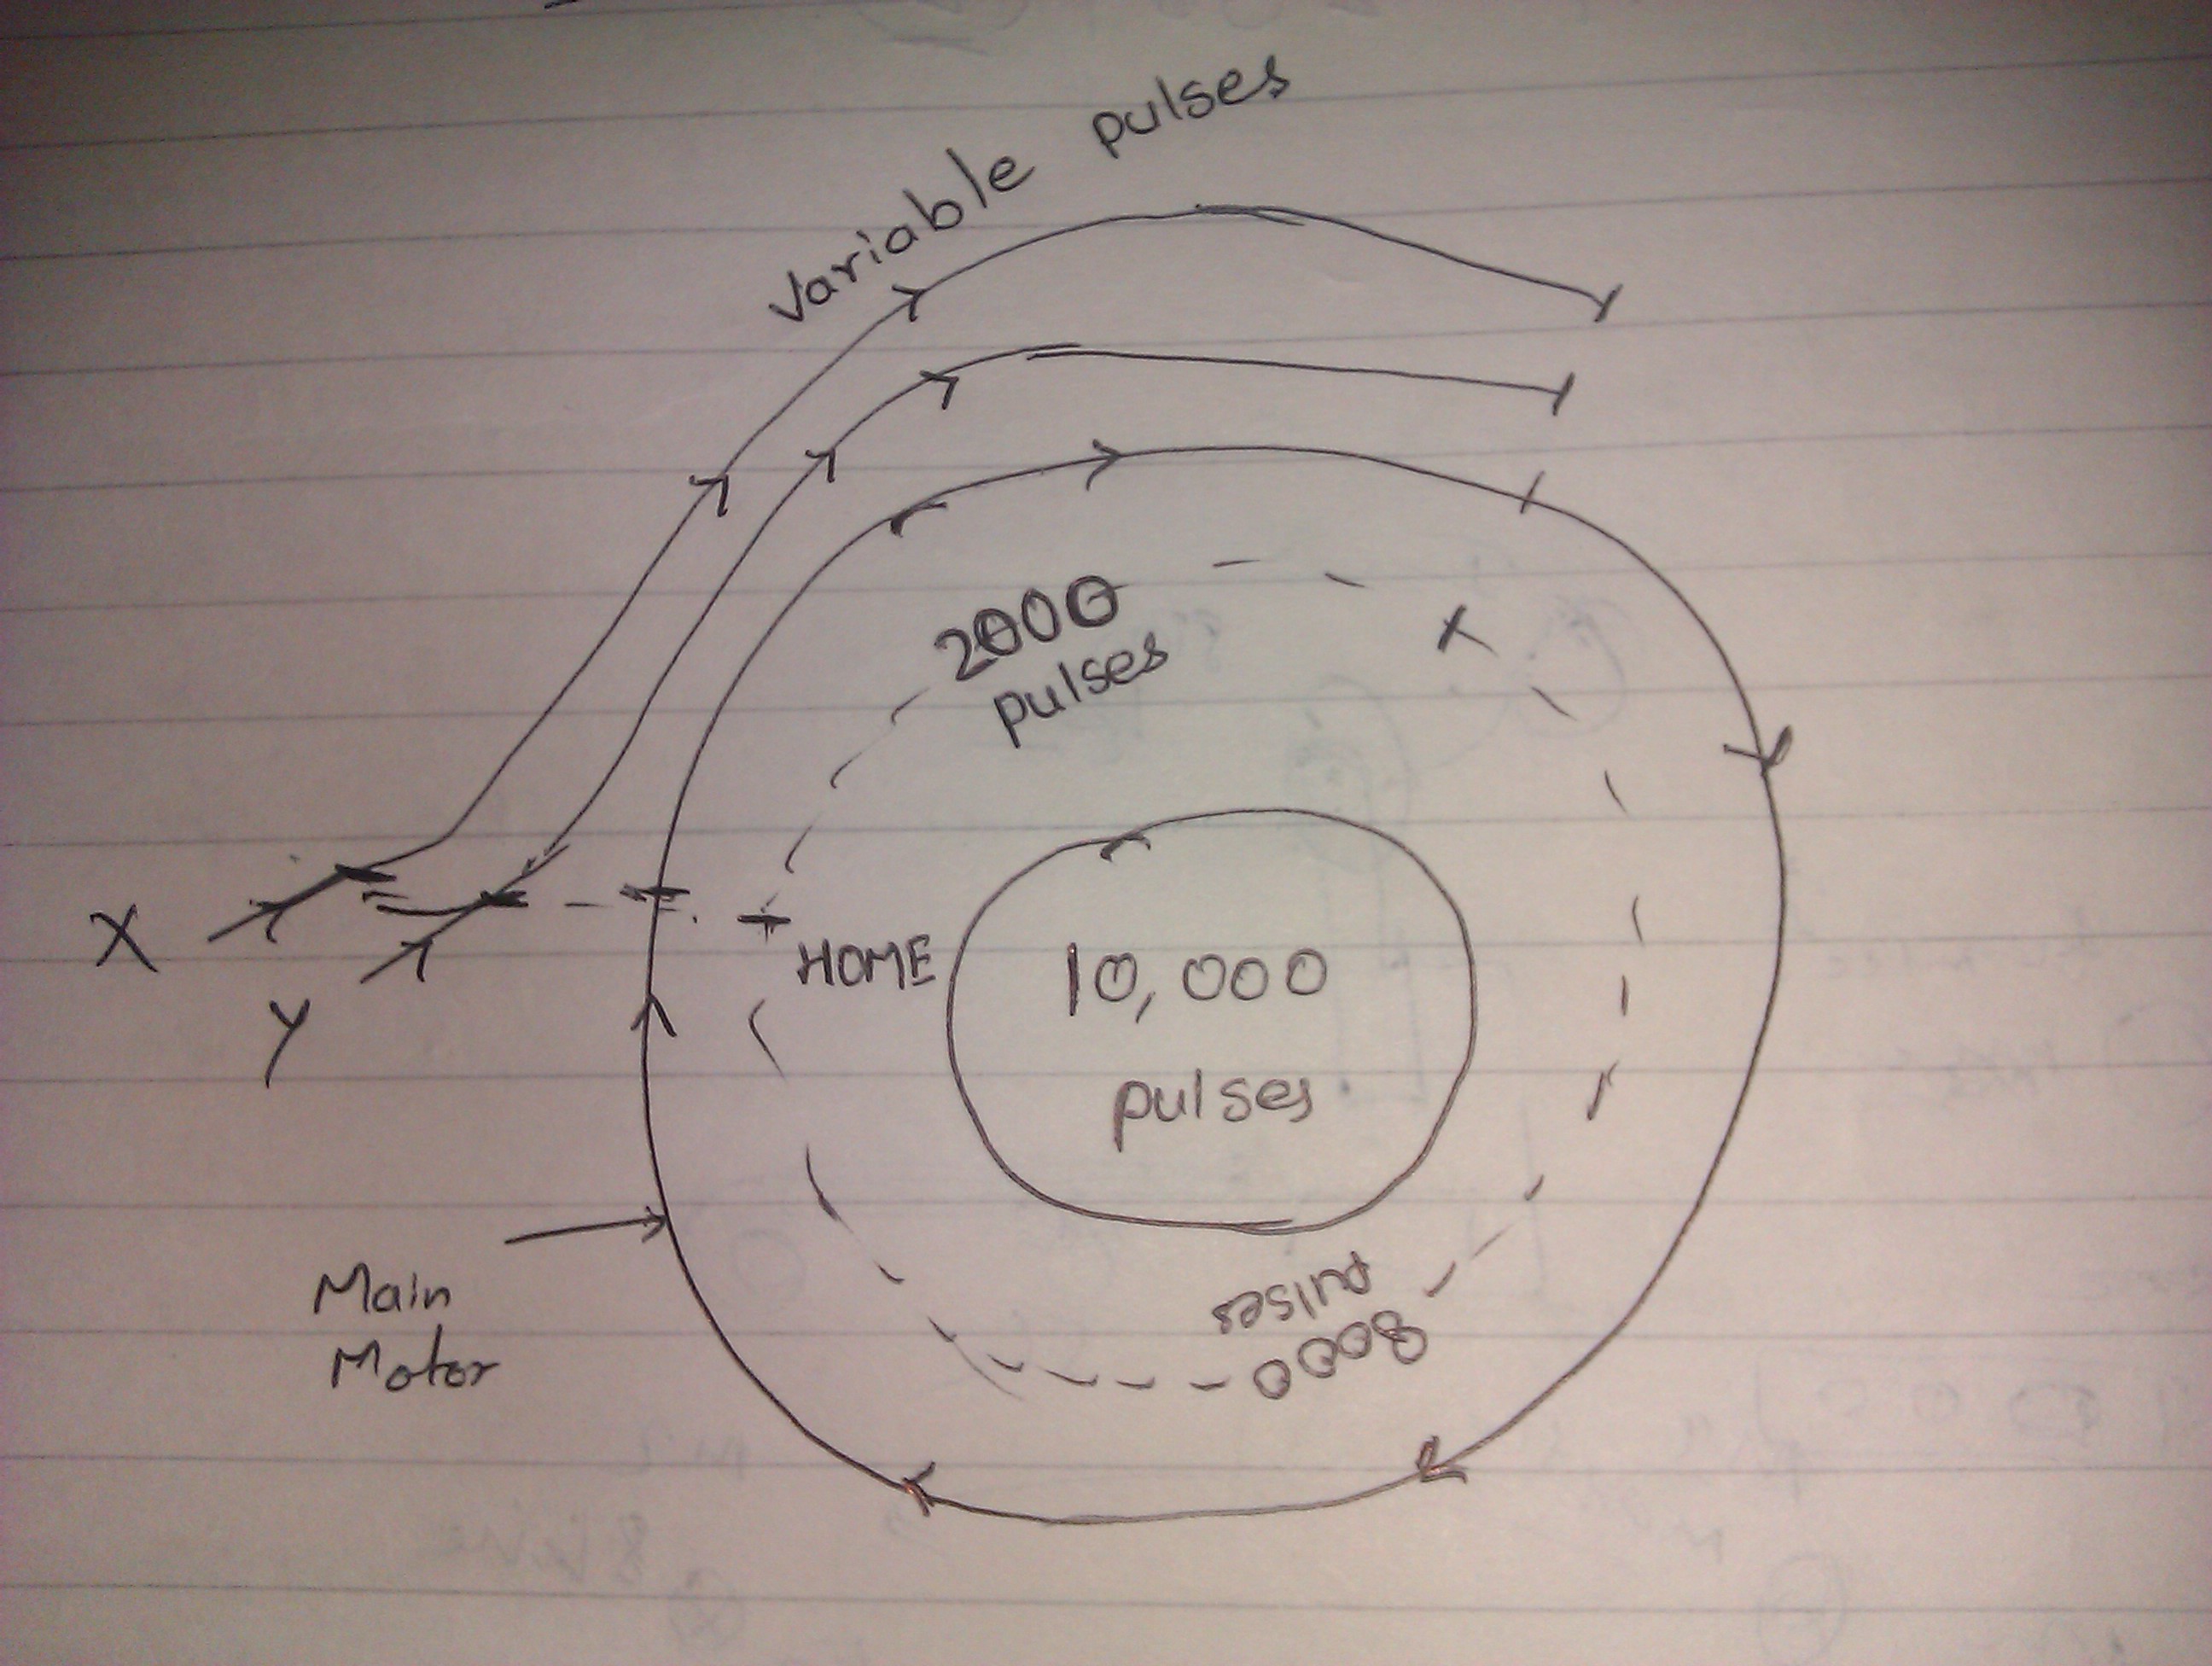 Variable pulses
2000
pulses
X
HOME
10,000
pulses
Y
Main
Motor
8000
pulses